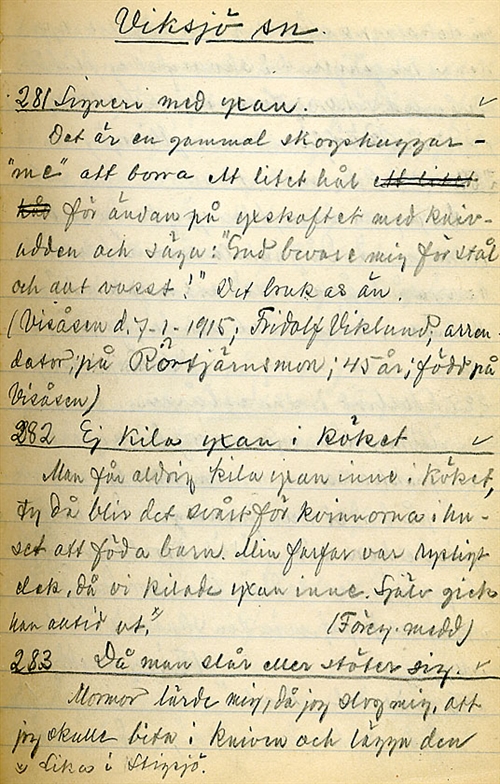 Viksjö sn
281 Signeri med yxan.
Det är en gammal skogshuggar-
"me" att borra ett litet hål ett litet
hås för ändan på yxskaftet med kniv-
udden och säga: "Gud bevare mig för stål
och allt vasst!" Det brukas än.
(Visåsen d. 7-1-1915; Fridolf Viklund, arren-
dator, på Rörtjärnsmon; 45 år; född på
Visåsen)
282 Ej kila yxan i köket
Man får aldrig kila yxan inne i köket,
ty då blir det svårt för kvinnorna i hu-
set att föda barn. Min farfar var rysligt
elak, då vi kilade yxan inne. Själv gick
han alltid ut.
(Föreg. medd)
283 Då man slår eller stöter sig.
Mormor lärde mig, då jag slog mig, att
jag skulle bita i kniven och lägga den
Lika i Stigsjö.